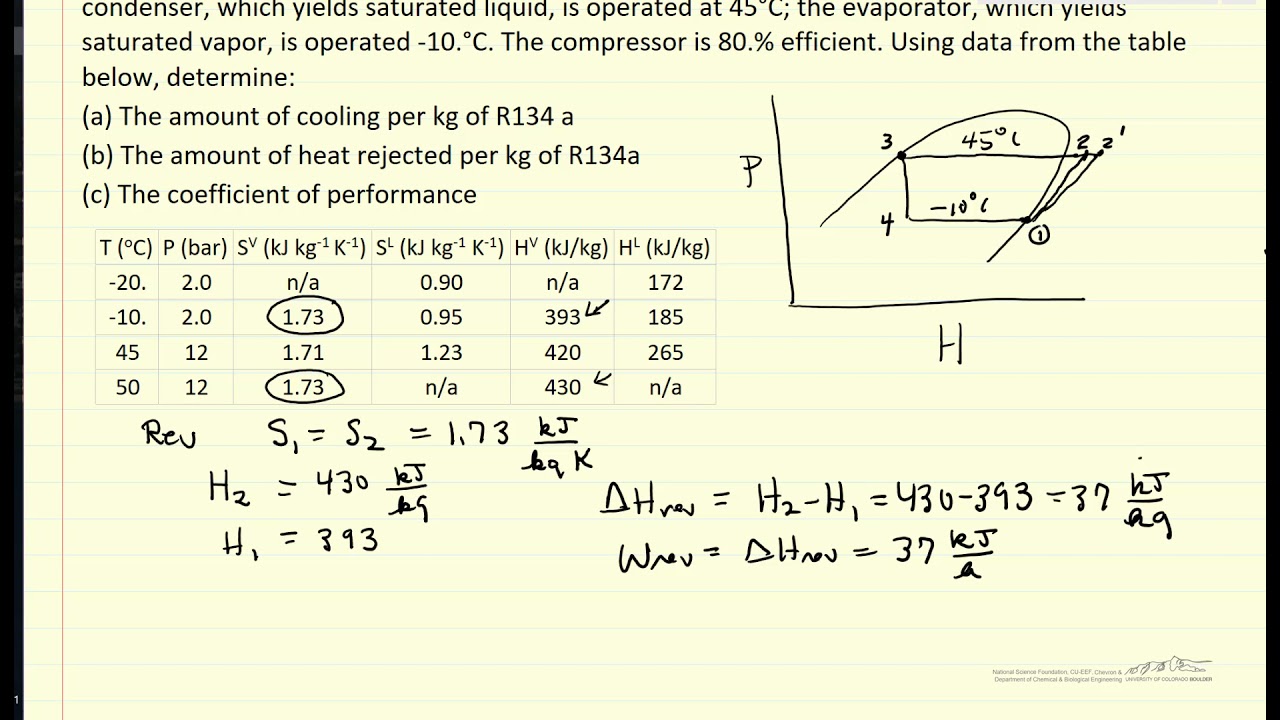 condenser, which yields saturated liquid, is operated at 45°C; the evaporator, which yields
saturated vapor, is operated -10.°C. The compressor is 80.% efficient. Using data from the table
below, determine:
(a) The amount of cooling per kg of R134 a
(b) The amount of heat rejected per kg of R134a
(c) The coefficient of performance
T (°C) P (bar) Sⱽ (kJ kg⁻¹ K⁻¹) Sᴸ (kJ kg⁻¹ K⁻¹) Hⱽ (kJ/kg) Hᴸ (kJ/kg)
-20. 2.0 n/a 0.90 n/a 172
-10. 2.0 1.73 0.95 393 185
45 12 1.71 1.23 420 265
50 12 1.73 n/a 430 n/a
P
3 45°C 2 2'
4 -10°C 1
H
Rev S₁ = S₂ = 1.73 kJ/kg K
H₂ = 430 kJ/kg
H₁ = 393
ΔHrev = H₂ - H₁ = 430 - 393 = 37 kJ/kg
Wrev = ΔHrev = 37 kJ/
National Science Foundation, CU-EEF, Chevron &
Department of Chemical & Biological Engineering UNIVERSITY OF COLORADO BOULDER
1